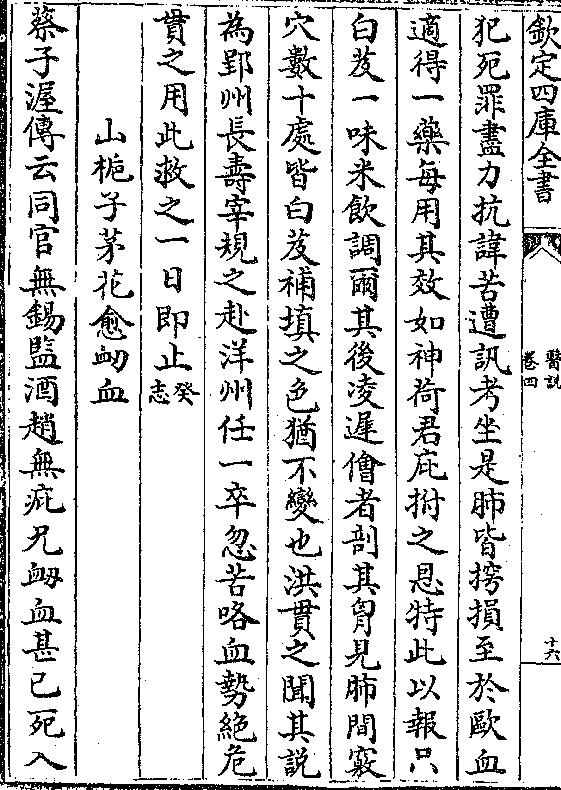 欽定四庫全書
醫説
卷四
十六
犯死罪盡力抗諱苦遭訊考坐是肺皆㧻損至於歐血
適得一藥每用其效如神荷君庇拊之恩特此以報只
白芨一味米飲調爾其後凌遲儈者剖其胷見肺間竅
穴數十處皆白芨補填之色猶不變也洪貫之聞其説
為郢州長壽宰規之赴洋州任一卒忽苦咯血勢絶危
貫之用此救之一日即止癸志
山梔子茅花愈衂血
蔡子渥傳云同官無錫監酒趙無疵兄衂血甚已死入